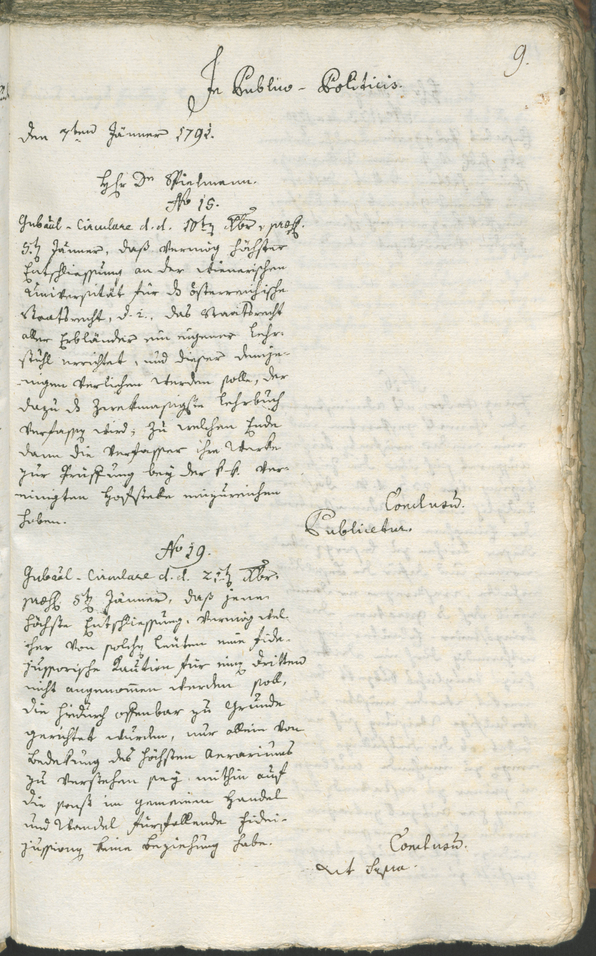 9.
In Publico-Politicis.
Den 7ten Jänner 1791.
Hr Dr Spielmann.
No 18.
Gubäal-Circulare d. d. Xbr, praes.
5t Jänner, daß vermög höchster
Entschliessung an der wienerischen
Universität für d österreichische
Staatsrecht, d. i., das Staatsrecht
aller Erbländer ein eigener Lehr-
stuhl errichtet, und dieser demje-
nigen verliehen werden solle, der
dazu d zwekmäsigste Lehrbuch
verfassen wird; zu welchen Ende
dann die Verfasser ihre Werke
zur Prüfung bey der k. k. ver-
einigten Hofstelle einzureichen
haben.
Conclusu.
Publicetur.
No 19.
Gubäal-Circulare d. d. Xbr.
praes 5t Jänner, daß jene
höchste Entschliessung, vermög wel-
cher von solchen Leuten eine fide-
jussorische Kaution für einen dritten
nicht angenommen werden soll,
die hiedurch offenbar zu Grunde
gerichtet wurden, nur allein von
Bedekung des höchsten Aerariums
zu verstehen sey, mithin auf
die sonst im gemeinen Handel
und Wandel fürfallende fidei-
jussionen keine Beziehung habe.
Conclusu.
Ut Supra.